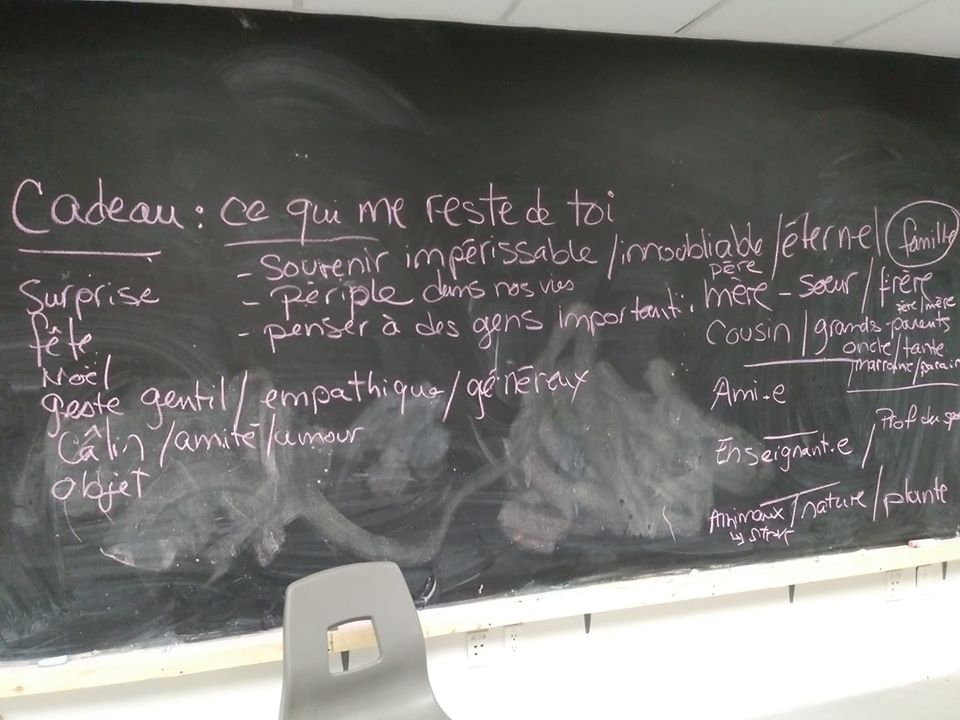 Cadeau : ce qui me reste de toi
- Souvenir impérissable / innoubliable / éternel
- périple dans nos vies
- penser à des gens important :
Surprise
fête
Noël
geste gentil / empathique / généreux
Câlin / amitié / amour
objet
famille
père
mère - soeur / frère
père / mère
Cousin / grands-parents
oncle / tante
marraine / parain
Ami.e
Enseignant.e / Prof de
Animaux / nature / plante